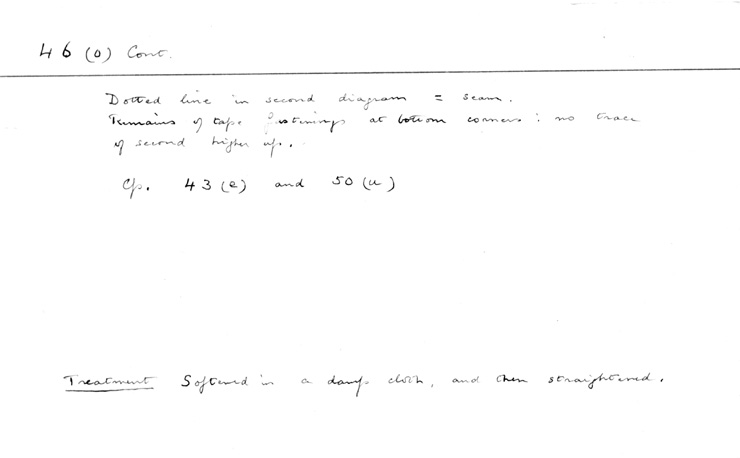 46 (o) Cont.
Dotted line in second diagram = seam.
Remains of tape fastenings at bottom corners: no trace
of second higher up.
Cp. 43 (e) and 50 (u)
Treatment Softened in a damp cloth, and then straightened.